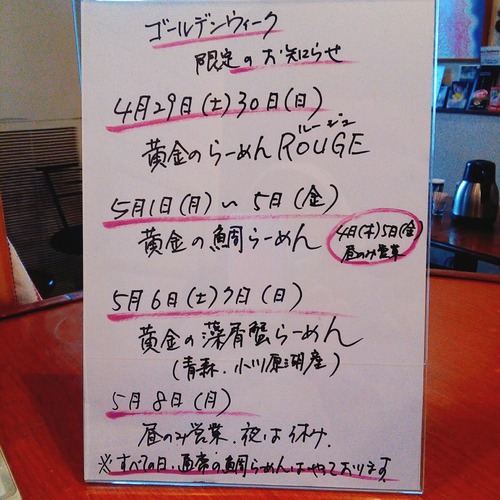 ゴールデンウィーク
限定のお知らせ
4月29日(土)30日(日)
ルージュ
黄金のらーめんROUGE
5月1日(月)〜5日(金)
黄金の鯛らーめん
4日(木)5日(金)
昼のみ営業
5月6日(土)7日(日)
黄金の藻屑蟹らーめん
(青森.小川原湖産)
5月8日(月)
昼のみ営業.夜は休み.
※すべての日、通常の鯛らーめんはやっております